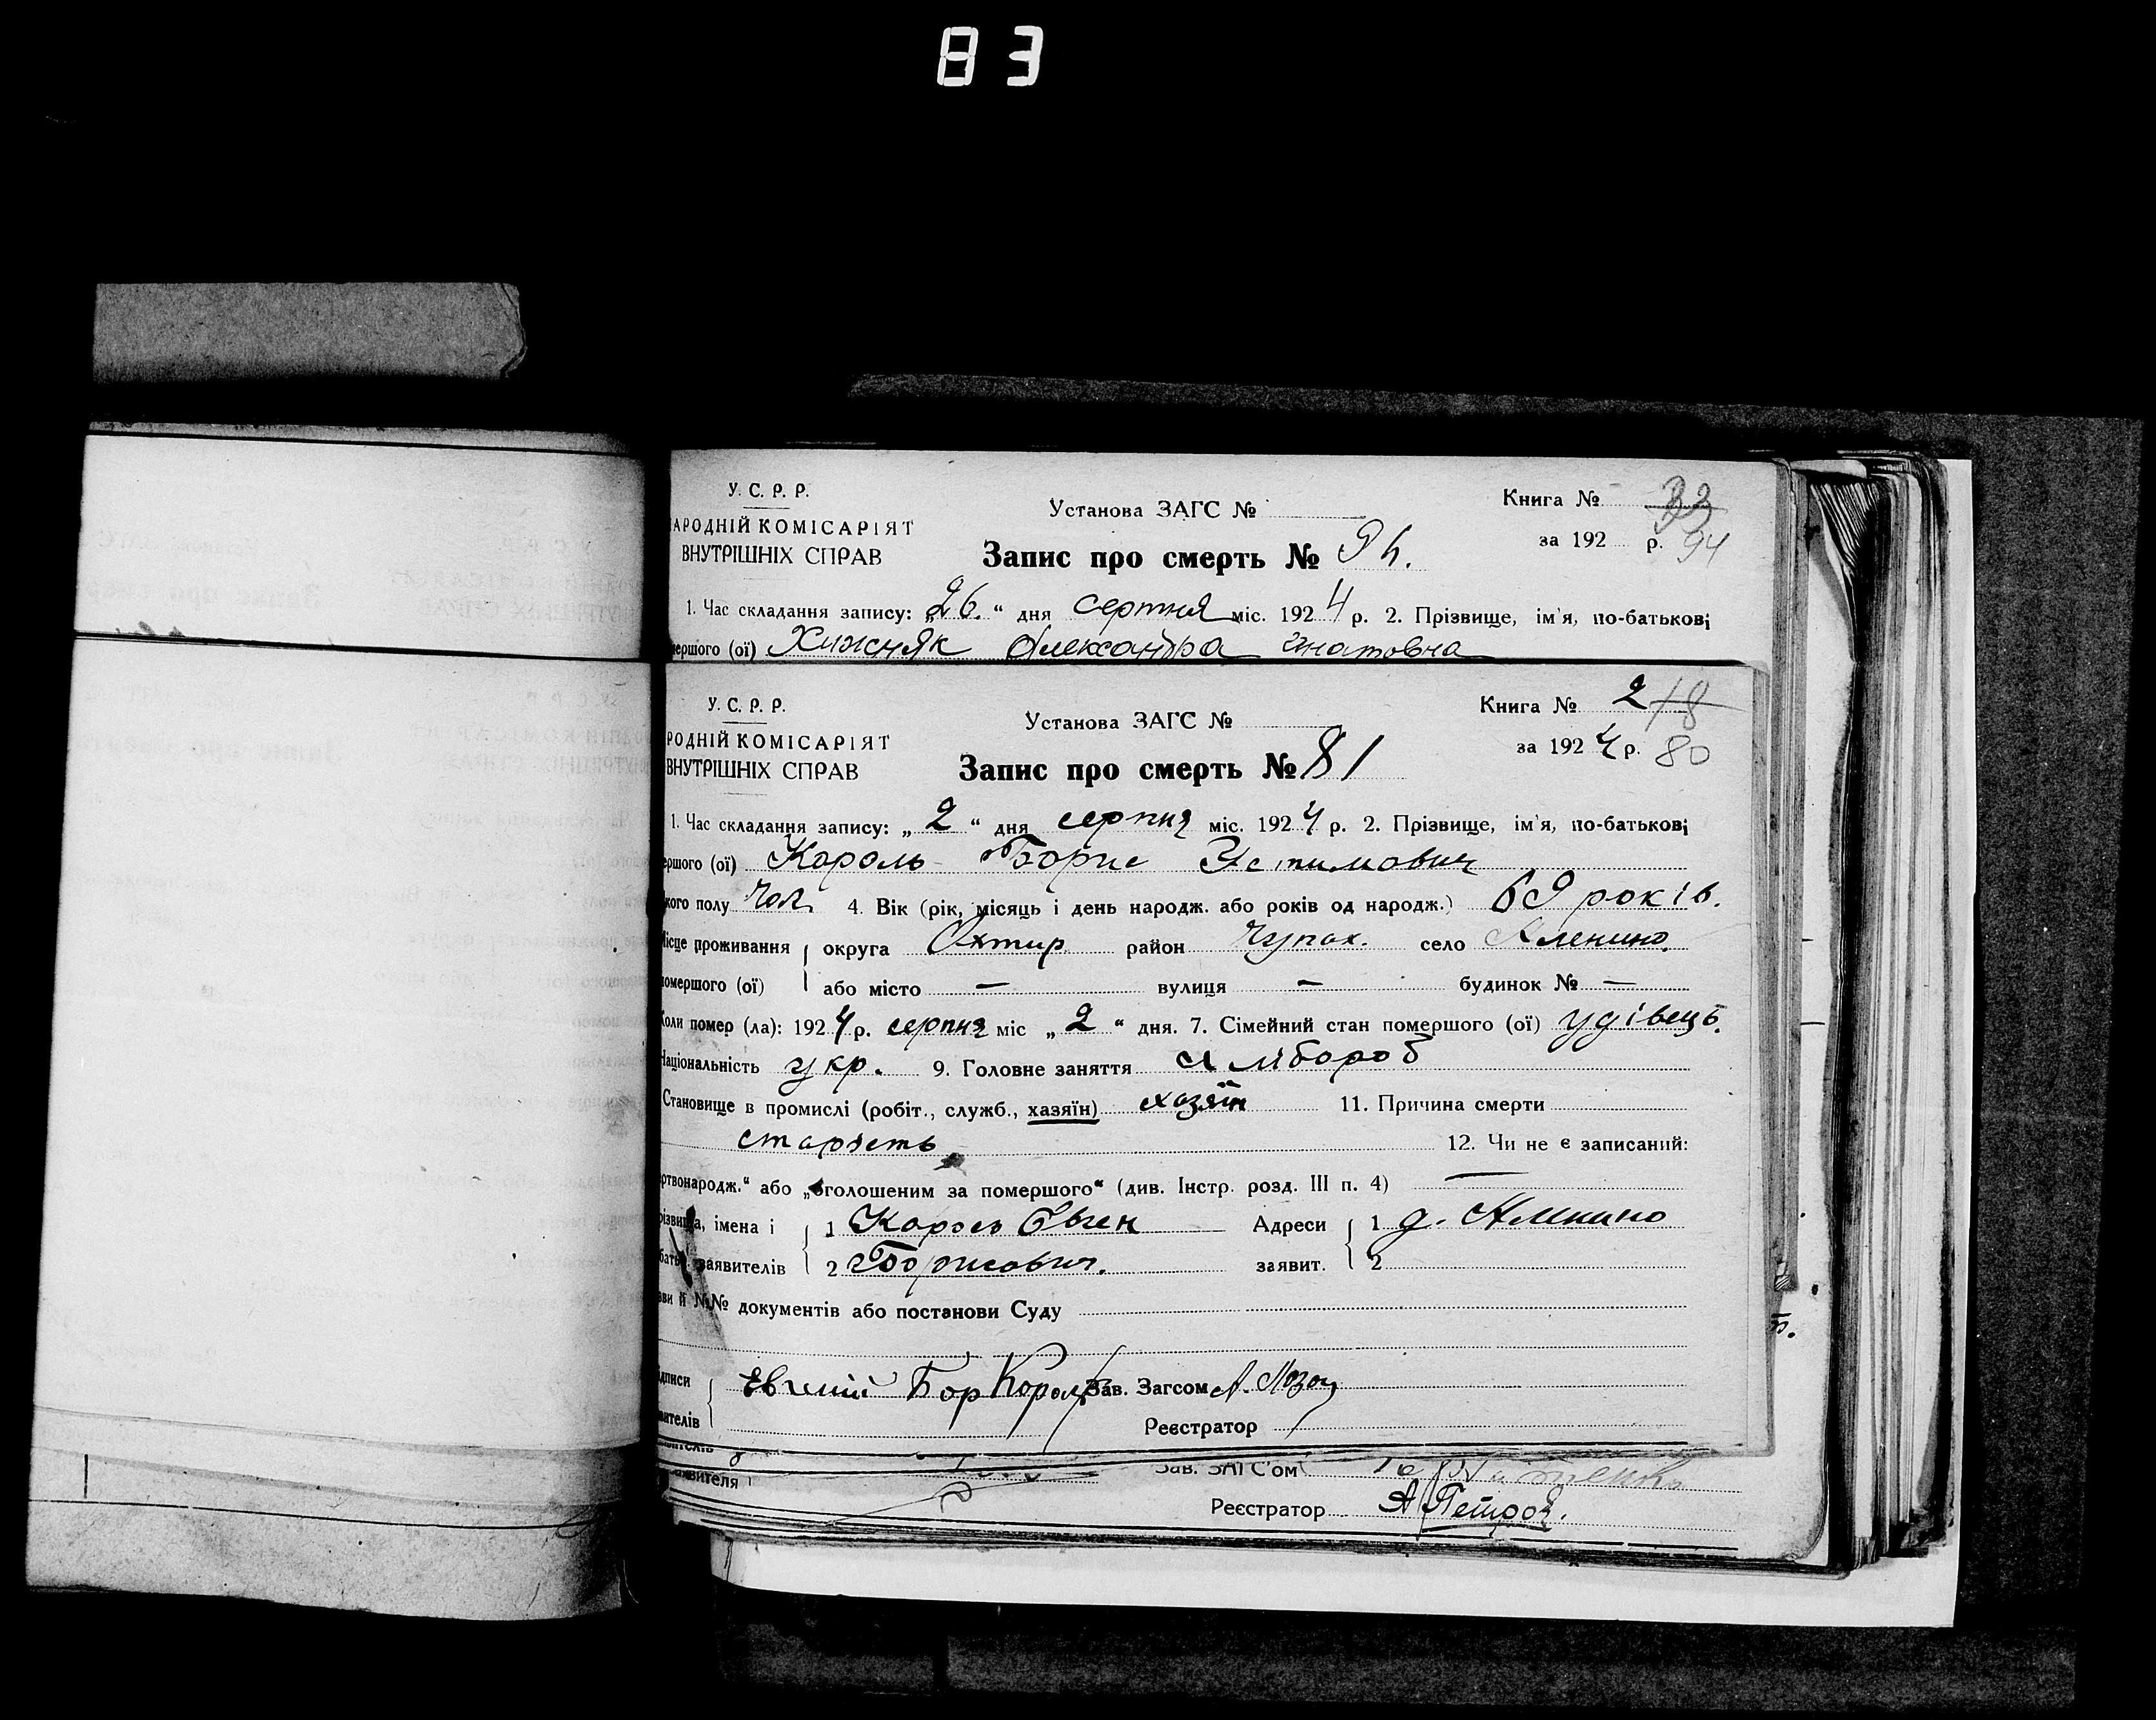 83
У. С. Р. Р.
АРОДНІЙ КОМІСАРІЯТ
ВНУТРІШНІХ СПРАВ
Установа ЗАГС №
Запис про смерть № 94.
Книга № 33
за 192 р. 94
1. Час складання запису: „26.“ дня серпня міс. 1924 р. 2. Прізвище, ім'я, по-батькові
мершого (ої) Хижняк Александра Гнатовна
У. С. Р. Р.
РОДНІЙ КОМІСАРІЯТ
ВНУТРІШНІХ СПРАВ
Установа ЗАГС №
Запис про смерть № 81
Книга № 2 78
за 1924 р. 80
1. Час складання запису: „2“ дня серпня міс. 1924 р. 2. Прізвище, ім'я, по-батькові
ершого (ої) Король Борис Устимович
кого полу чол. 4. Вік (рік, місяць і день народж. або років од народж.) 69 років.
Місце проживання округа Охтир. район Чупах. село Аленино.
помершого (ої) або місто — вулиця — будинок № —
Коли помер (ла): 1924 р. серпня міс „2“ дня. 7. Сімейний стан помершого (ої) удівець.
Національність укр. 9. Головне заняття хлібороб
Становище в промислі (робіт., служб., хазяїн) хазяїн 11. Причина смерти
старість 12. Чи не є записаний:
ртвонародж.“ або „оголошеним за помершого“ (див. Інстр. розд. III п. 4) —
різвища, імена і 1 Король Євген Адреси 1 д. Аленино
бать заявителів 2 Борисович. заявит. 2
зви й №№ документів або постанови Суду
дписи Евгений Бор Король Зав. Загсом А.
вителів Реєстратор
явителя Зав. ЗАГС'ом
Реєстратор А Петров.